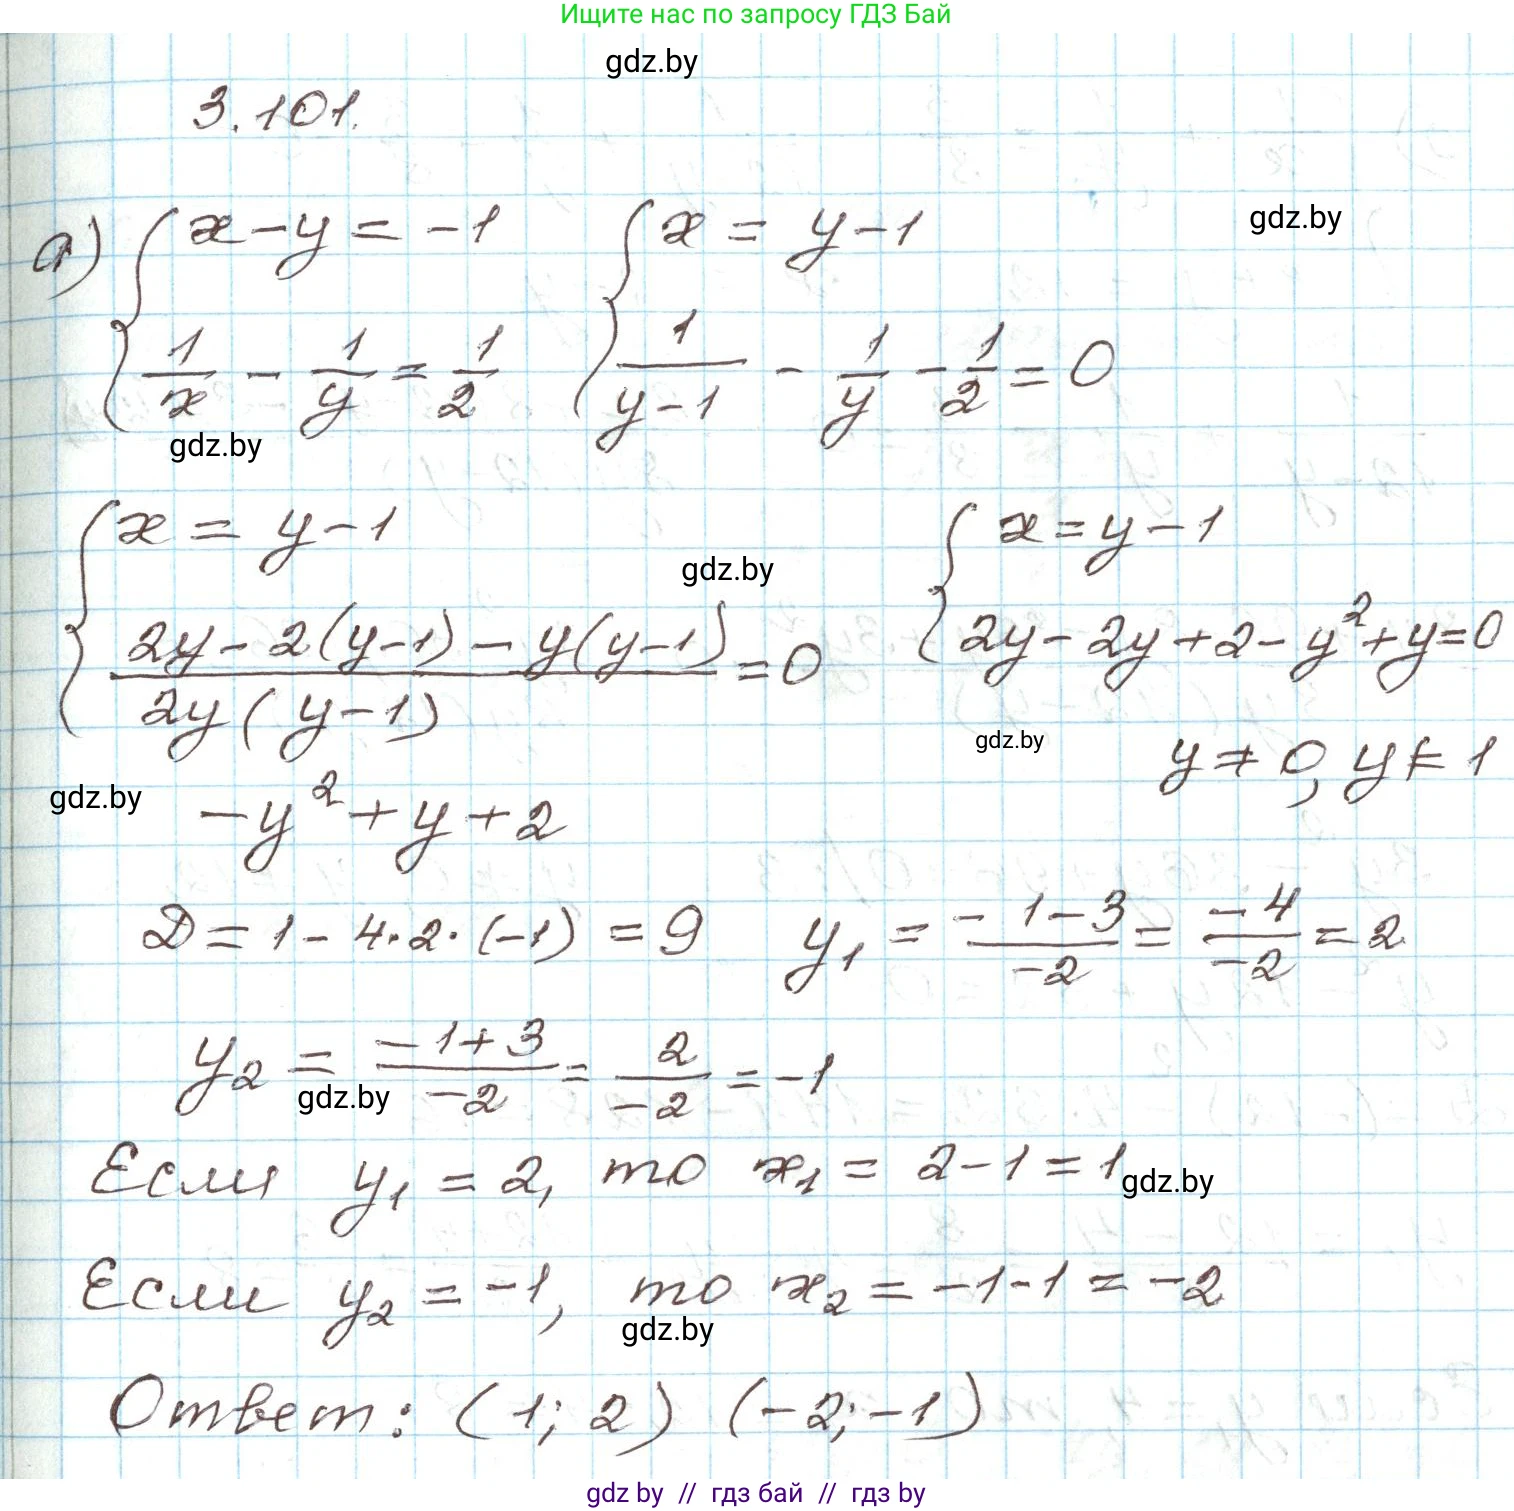 Ищите нас по запросу ГДЗ Бай
gdz.by
3.101.
а) { x - y = -1 { x = y - 1
gdz.by
1/x - 1/y = 1/2 1/(y-1) - 1/y - 1/2 = 0
gdz.by
{ x = y - 1 { x = y - 1
gdz.by
(2y - 2(y-1) - y(y-1))/(2y(y-1)) = 0 2y - 2y + 2 - y² + y = 0
gdz.by
y ≠ 0, y ≠ 1
gdz.by
-y² + y + 2
D = 1 - 4·2·(-1) = 9 y₁ = (-1-3)/(-2) = (-4)/(-2) = 2
y₂ = (-1+3)/(-2) = 2/(-2) = -1
gdz.by
Если y₁ = 2, то x₁ = 2-1 = 1
gdz.by
Если y₂ = -1, то x₂ = -1-1 = -2
gdz.by
Ответ: (1; 2) (-2; -1)
gdz.by // гдз бай // гдз by